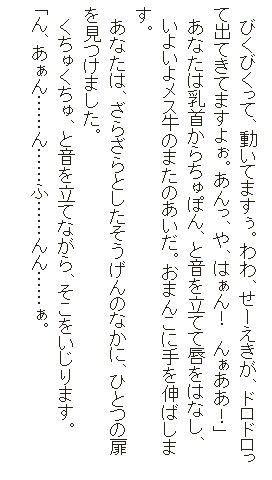 びくびくって、動いてますぅ。わわ、せーえきが、ドロドロっ
て出てきてますよぉ。あんっ、や、はぁん！　んぁああ！」
　あなたは乳首からちゅぽん、と音を立てて唇をはなし、
　いよいよメス牛のまたのあいだ。おまんこに手を伸ばしま
す。
　あなたは、ざらざらとしたそうげんのなかに、ひとつの扉
を見つけました。
　くちゅくちゅ、と音を立てながら、そこをいじります。
「ん、あぁん……ん……ふ……んん……ぁ。